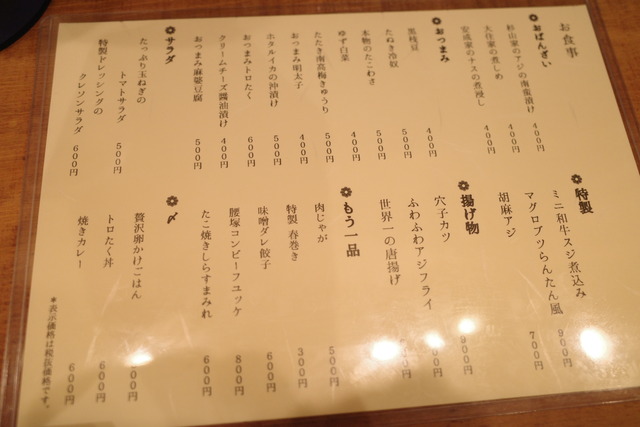 お食事
おばんざい
杉山家のアジの南蛮漬け 400円
大住家の煮しめ 400円
安成家のナスの煮浸し 400円
おつまみ
黒枝豆 400円
たぬき冷奴 500円
本物のたこわさ 500円
ゆず白菜 400円
たたき南高梅きゅうり 500円
おつまみ明太子 400円
ホタルイカの沖漬け 500円
おつまみトロたく 600円
クリームチーズ醤油漬け 400円
おつまみ麻婆豆腐 500円
サラダ
たっぷり玉ねぎの
トマトサラダ 500円
特製ドレッシングの
クレソンサラダ 600円
特製
ミニ和牛スジ煮込み 900円
マグロブツらんたん風 700円
胡麻アジ
揚げ物
穴子カツ 900円
ふわふわアジフライ
世界一の唐揚げ
もう一品
肉じゃが 500円
特製 春巻き 300円
味噌ダレ餃子 600円
腰塚コンビーフユッケ 800円
たこ焼きしらすまみれ 600円
〆
贅沢卵かけごはん
トロたく丼 600円
焼きカレー 600円
＊表示価格は税抜価格です。